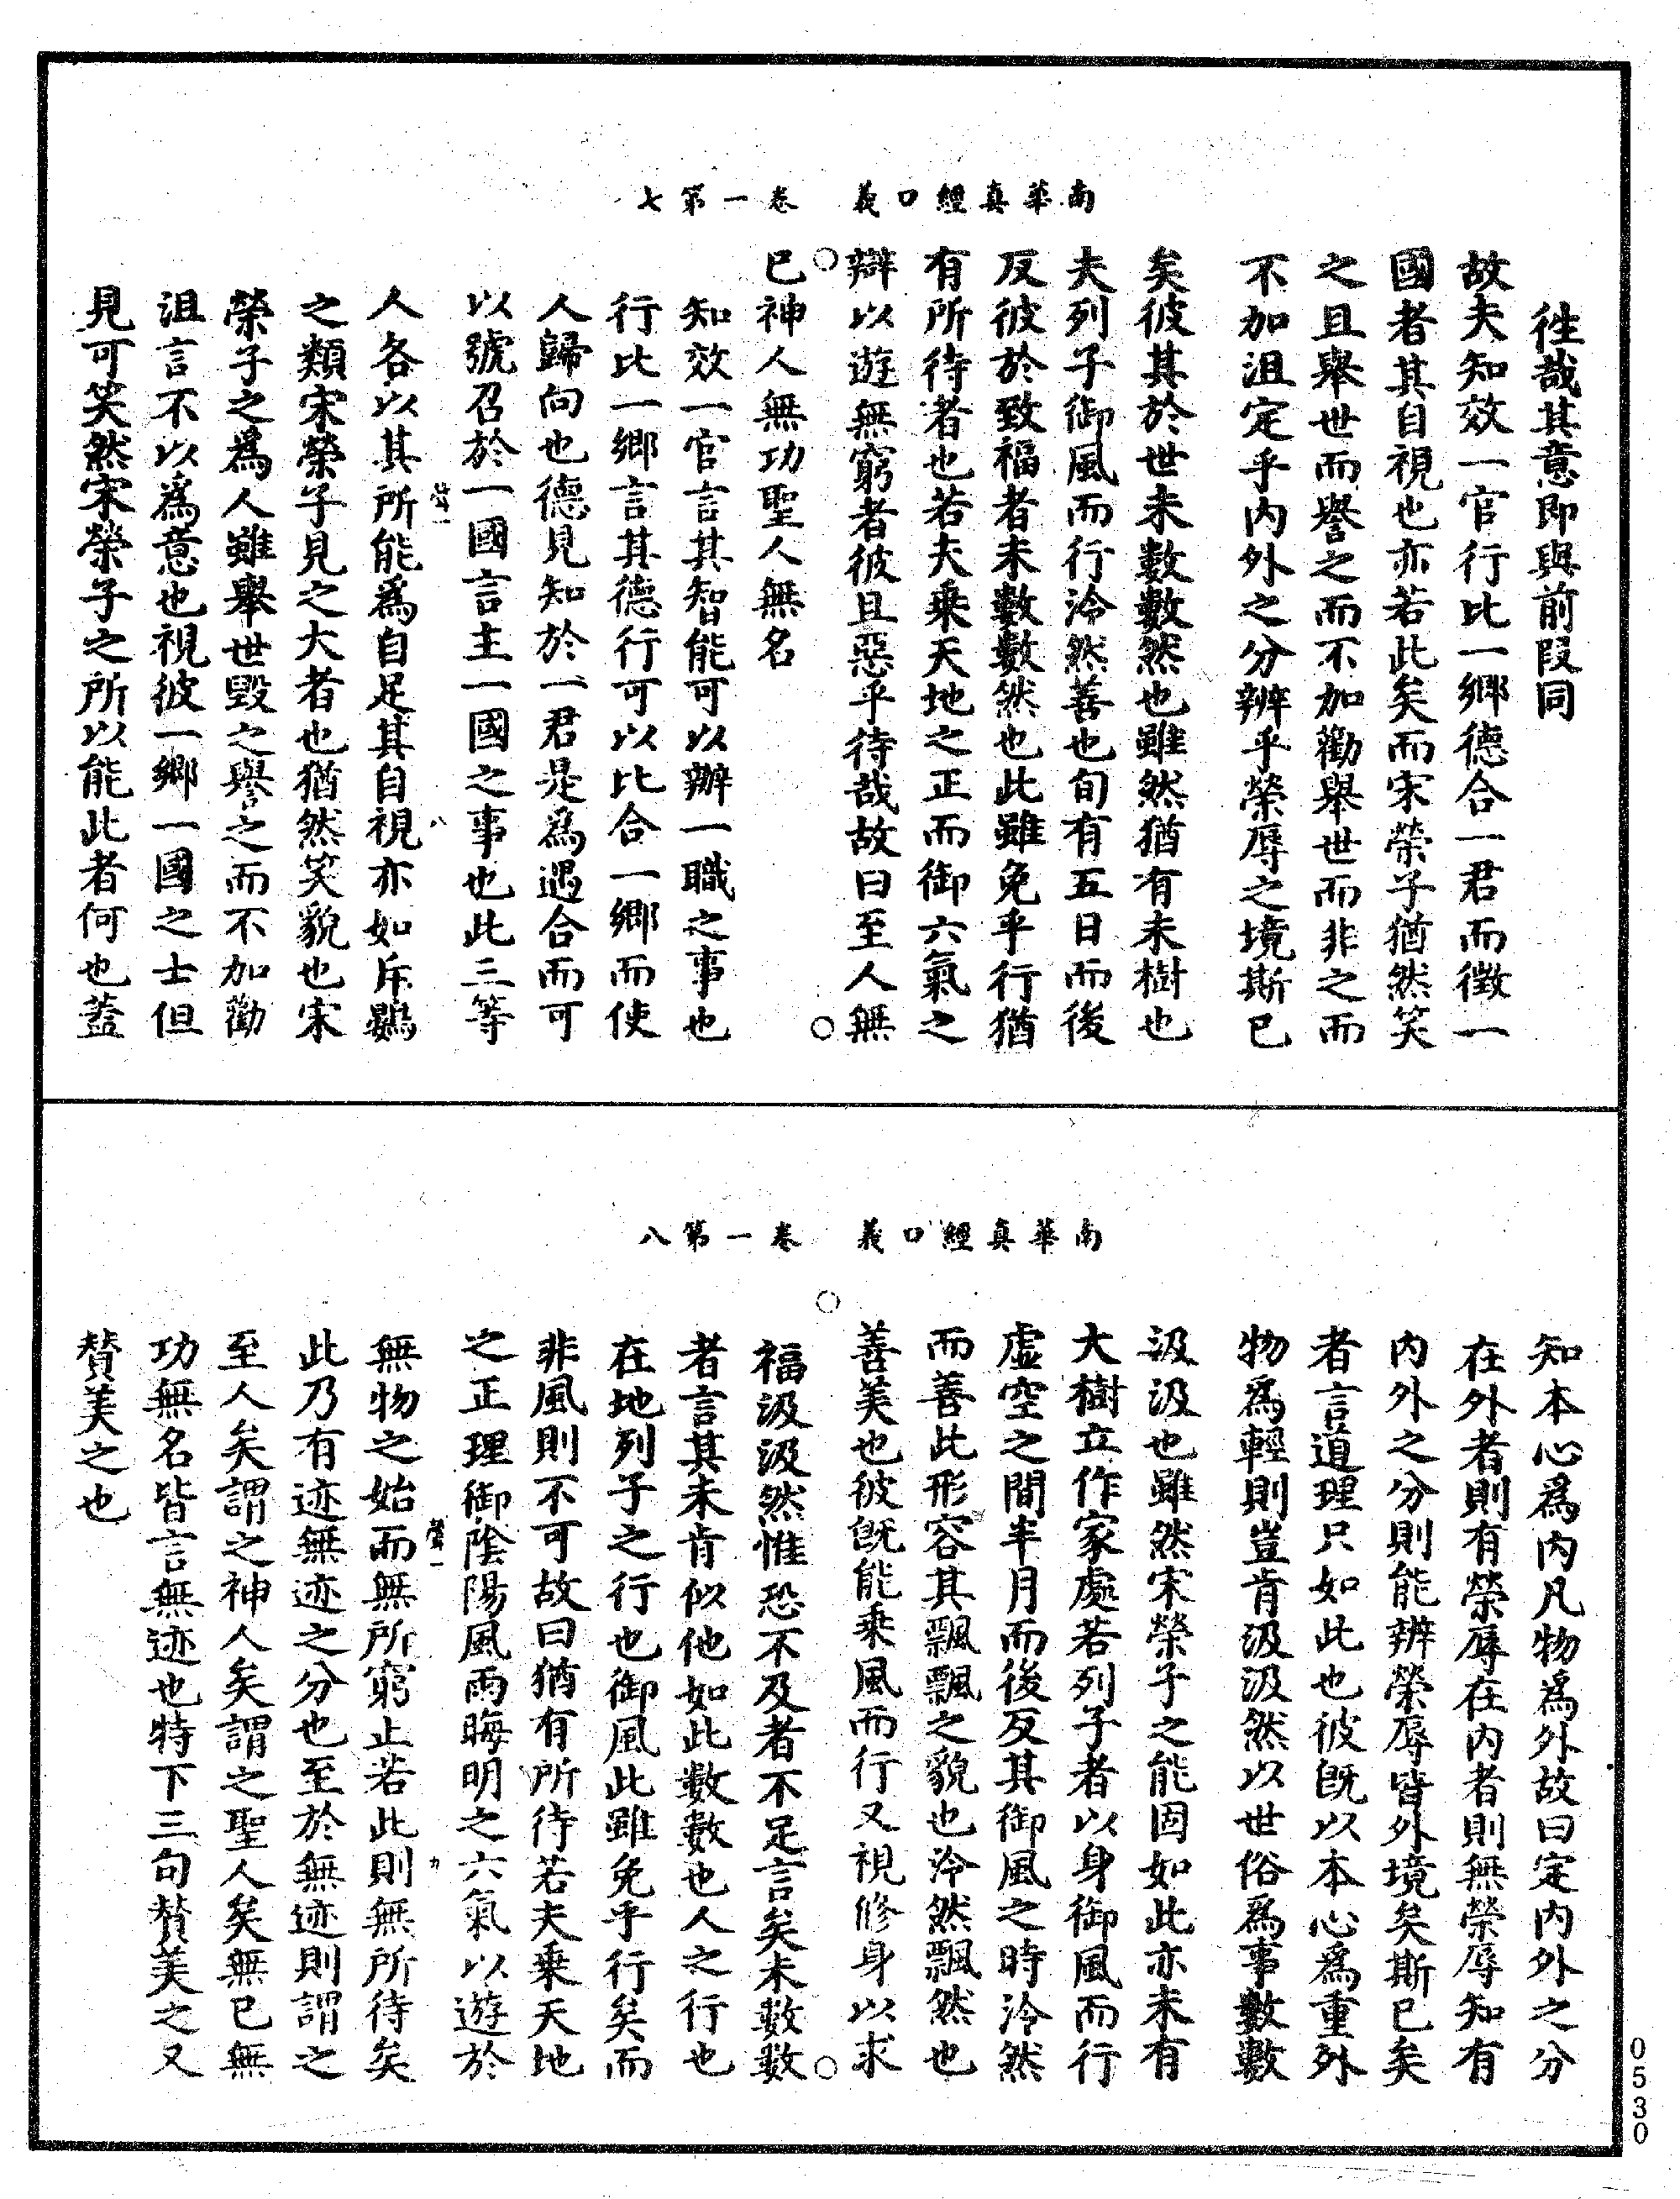 南華真經口義　卷一第七
徃哉其意即與前段同
故夫知效一官行比一鄉德合一君而徵一
國者其自視也亦若此矣而宋榮子猶然笑
之且舉世而譽之而不加勸舉世而非之而
不加沮定乎內外之分辨乎榮辱之境斯已
矣彼其於世未數數然也雖然猶有未樹也
夫列子御風而行泠然善也旬有五日而後
反彼於致福者未數數然也此雖免乎行猶
有所待者也若夫乗天地之正而御六氣之
辯以遊無窮者彼且惡乎待哉故曰至人無
已神人無功聖人無名
知效一官言其智能可以辦一職之事也
行比一鄉言其德行可以比合一鄉而使
人歸向也德見知於一君是為遇合而可
以號召於一國言主一國之事也此三等
人各以其所能為自足其自視亦如斥鷃
之類宋榮子見之大者也猶然笑貌也宋
榮子之為人雖舉世毀之譽之而不加勸
沮言不以為意也視彼一鄉一國之士但
見可笑然宋榮子之所以能此者何也蓋
南華真經口義　卷一第八
知本心為內凡物為外故曰定內外之分
在外者則有榮辱在內者則無榮辱知有
內外之分則能辨榮辱皆外境矣斯已矣
者言道理只如此也彼既以本心為重外
物為輕則豈肯汲汲然以世俗為事數數
汲汲也雖然宋榮子之能固如此亦未有
大樹立作家處若列子者以身御風而行
虛空之間半月而後反其御風之時泠然
而善此形容其飄飄之貌也泠然飄然也
善美也彼既能乗風而行又視修身以求
福汲汲然惟恐不及者不足言矣未數數
者言其未肯似他如此數數也人之行也
在地列子之行也御風此雖免乎行矣而
非風則不可故曰猶有所待若夫乗天地
之正理御陰陽風雨晦明之六氣以遊於
無物之始而無所窮止若此則無所待矣
此乃有迹無迹之分也至於無迹則謂之
至人矣謂之神人矣謂之聖人矣無已無
功無名皆言無迹也特下三句賛美之又
賛美之也
0530